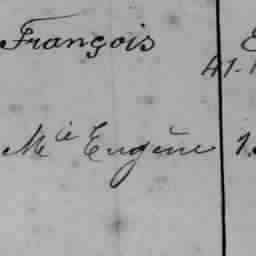 François
41-
Mie Eugène